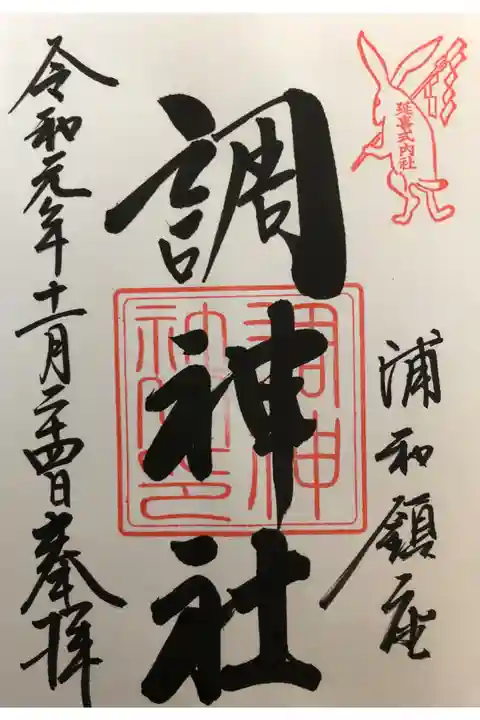 延喜式内社
浦和鎮座
調神社
調神社之印
令和元年十一月二十四日奉拝